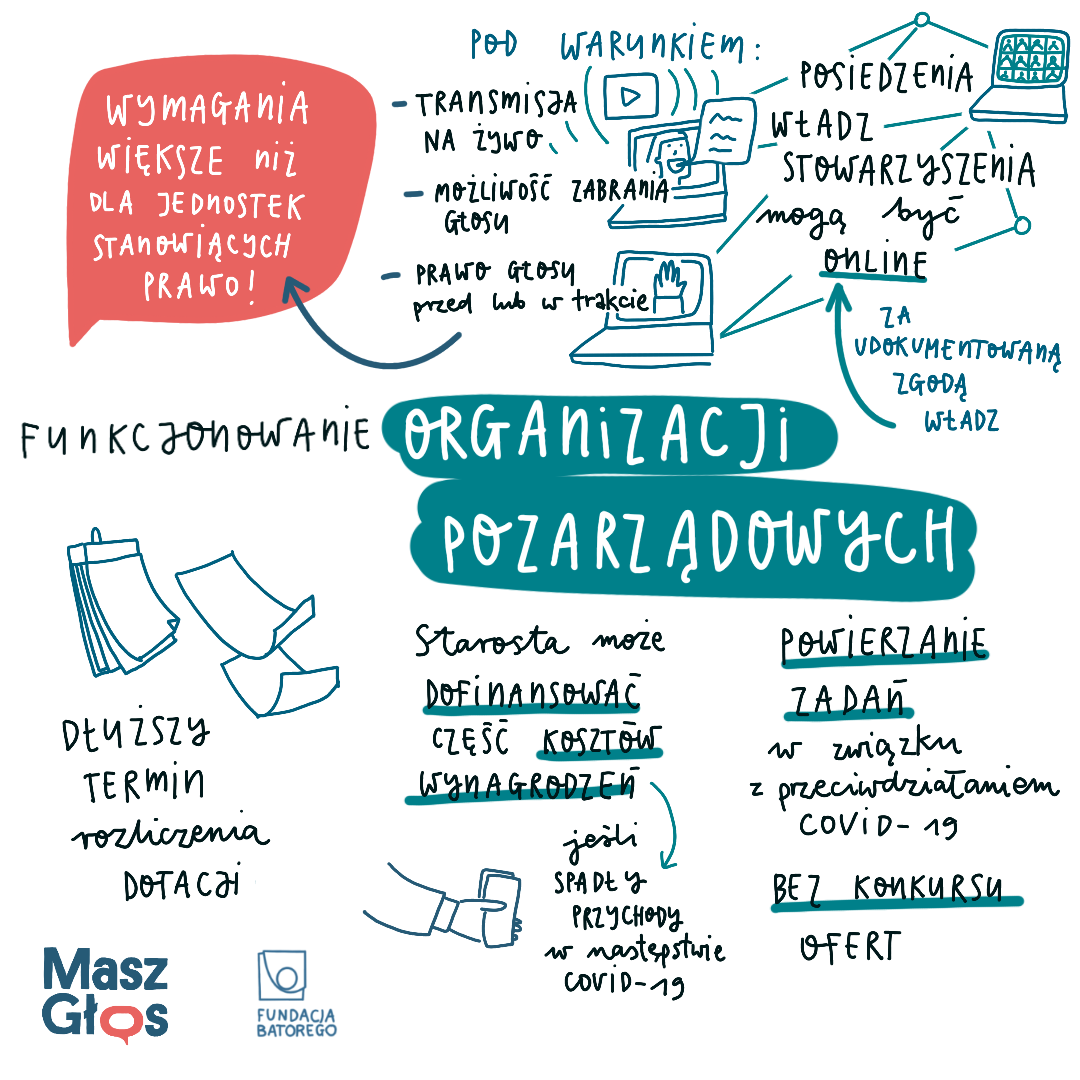 WYMAGANIA
WIĘKSZE niż
DLA JEDNOSTEK
STANOWIĄCYCH
PRAWO!
POD WARUNKIEM:
- TRANSMISJA
NA ŻYWO
- MOŻLIWOŚĆ ZABRANIA
GŁOSU
- PRAWO GŁOSU
przed lub w trakcie
POSIEDZENIA
WŁADZ
STOWARZYSZENIA
mogą być
ONLINE
ZA
UDOKUMENTOWANĄ
ZGODĄ
WŁADZ
FUNKCJONOWANIE ORGANIZACJI
POZARZĄDOWYCH
DŁUŻSZY
TERMIN
rozliczenia
DOTACJI
Starosta może
DOFINANSOWAĆ
CZĘŚĆ KOSZTÓW
WYNAGRODZEŃ
jeśli
SPADŁY
PRZYCHODY
w następstwie
COVID-19
POWIERZANIE
ZADAŃ
w związku
z przeciwdziałaniem
COVID-19
BEZ KONKURSU
OFERT
Masz
Głos
FUNDACJA
BATOREGO